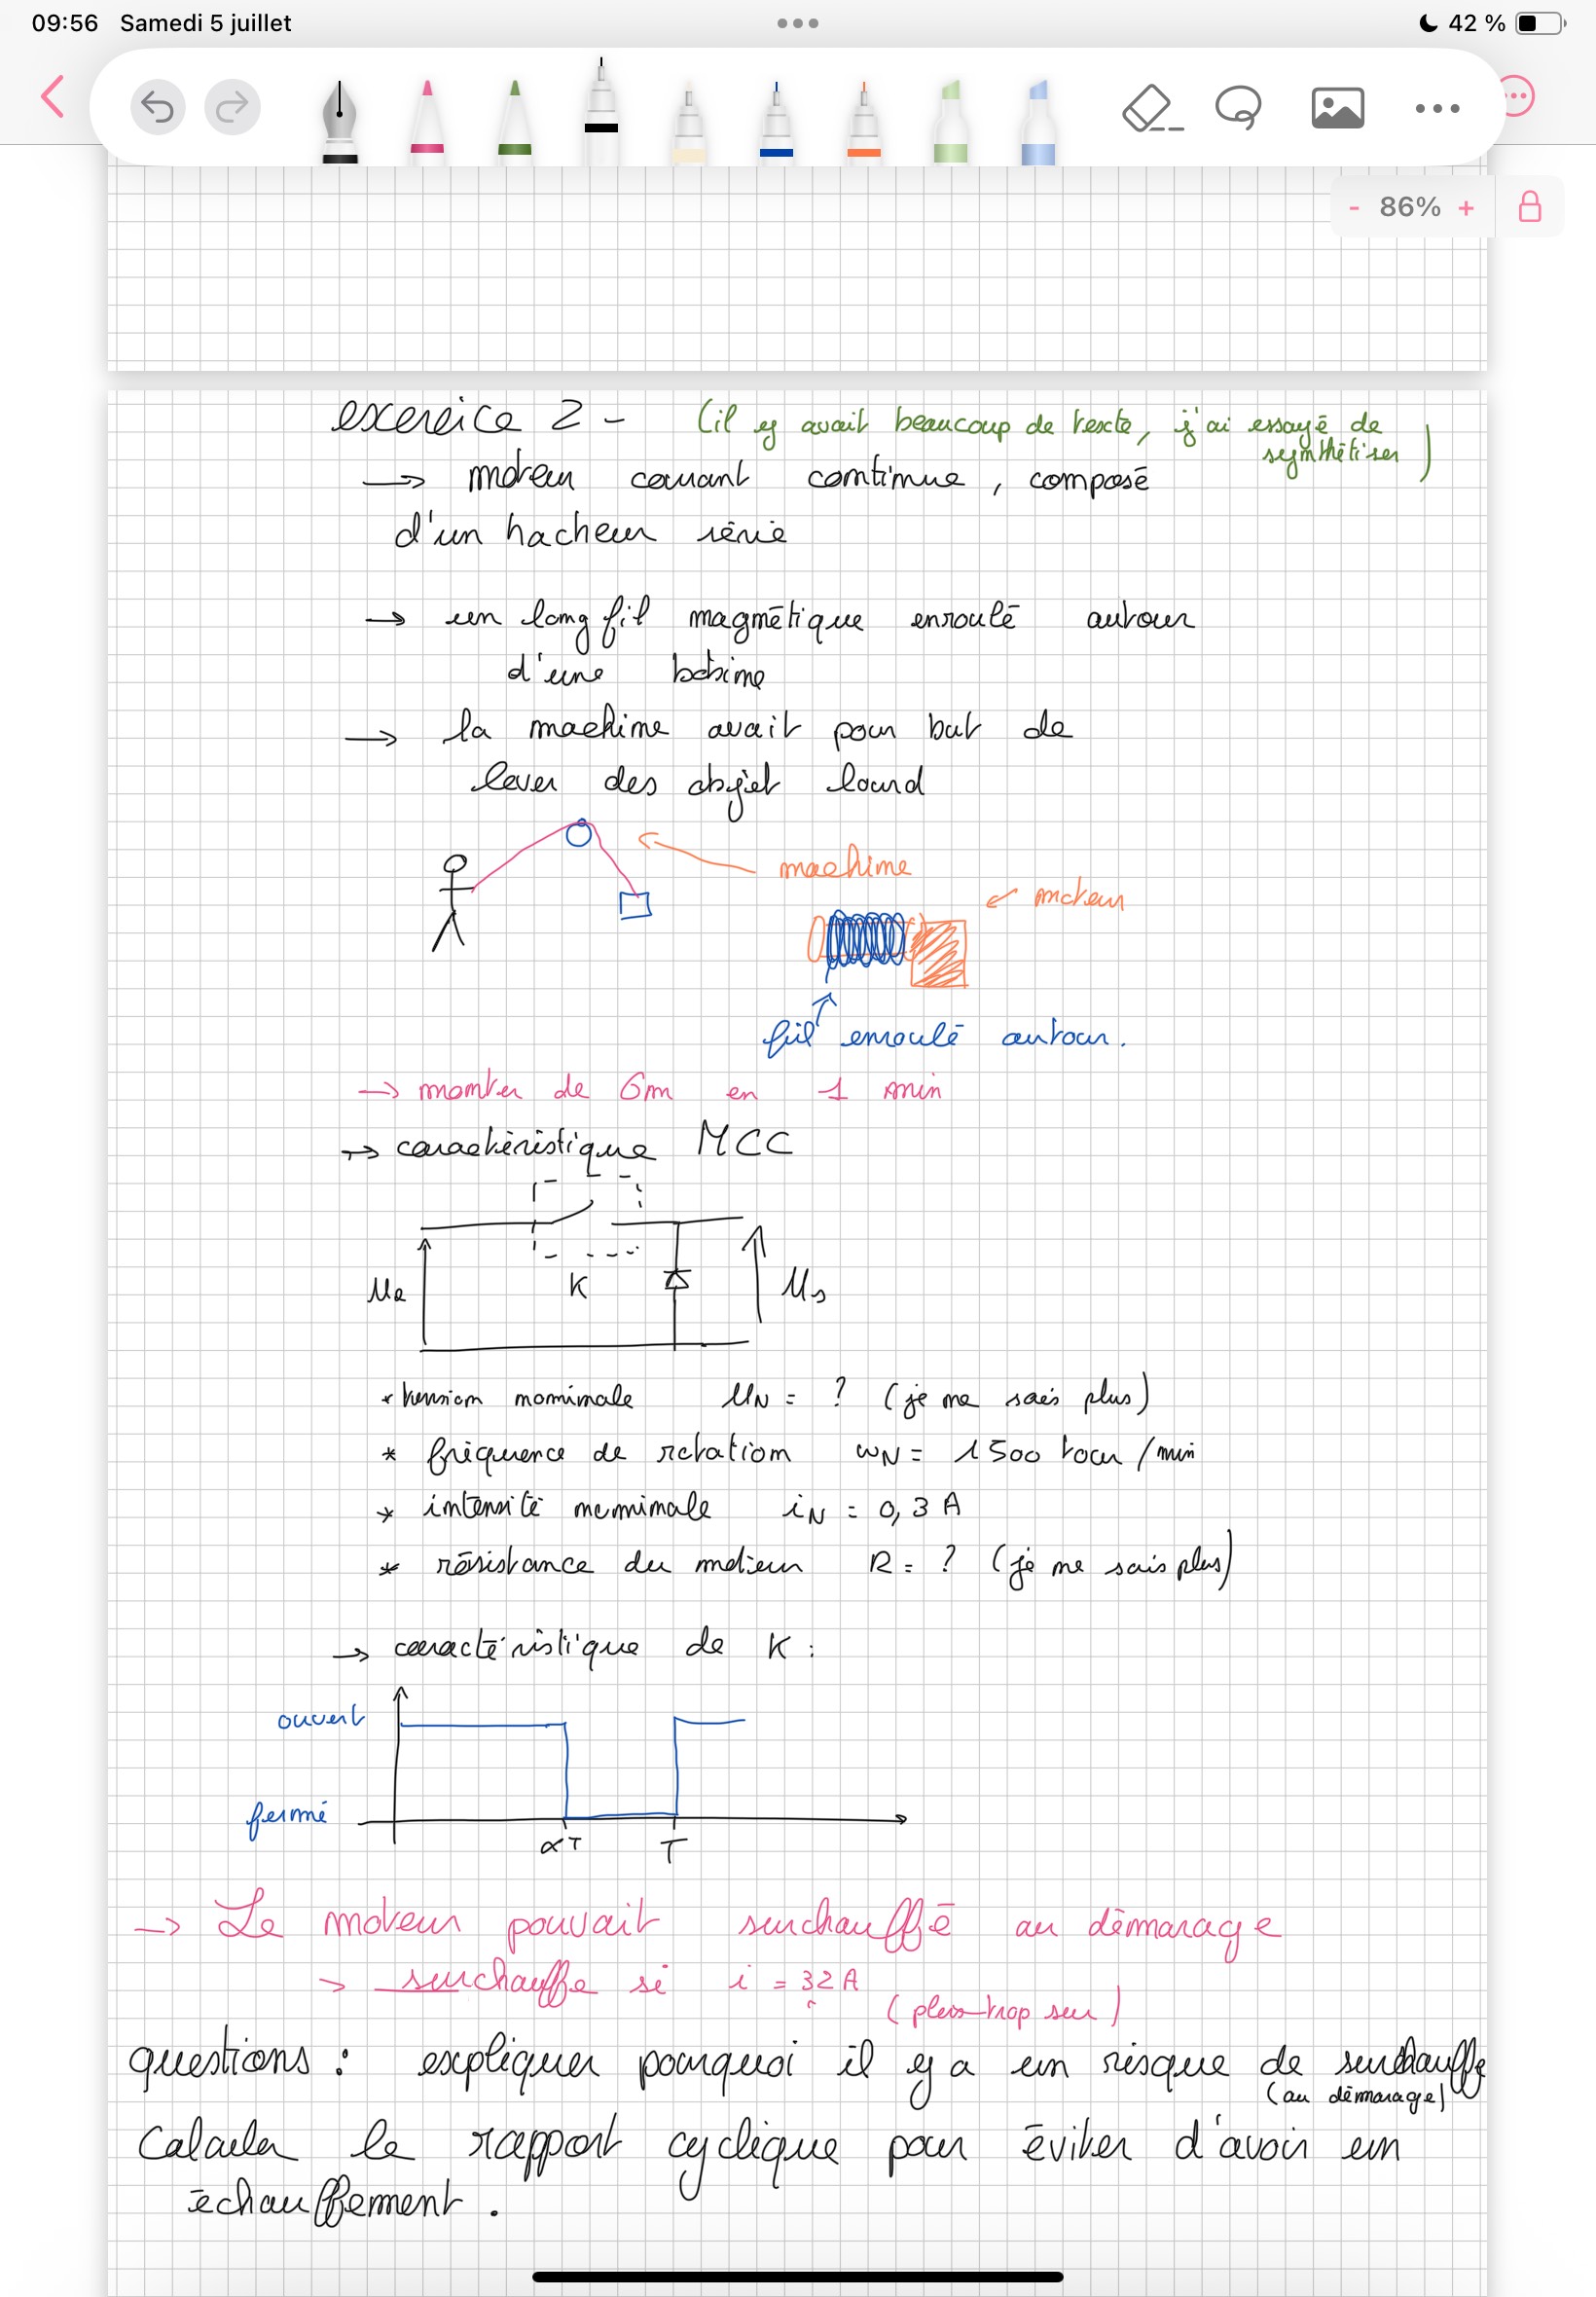 09:56 Samedi 5 juillet
42 %
- 86% +
exercice 2 - (il y avait beaucoup de texte, j'ai essayé de
synthétiser)
→ moteur courant continue, composé
d'un hacheur série
→ un long fil magnétique enroulé autour
d'une bobine
→ la machine avait pour but de
lever des objet lourd
machine
moteur
fil enroulé autour.
→ monter de 6m en 1 min
→ caractéristique MCC
Ue
K
Us
* tension nominale UN = ? (je ne sais plus)
* fréquence de rotation ωN = 1500 tour/min
* intensité nominale iN = 0,3 A
* résistance du moteur R = ? (je ne sais plus)
→ caractéristique de K :
ouvert
fermé
αT T
→ Le moteur pouvait surchauffé au démarage
> surchauffe si i = 32 A
(plus trop sur)
questions : expliquer pourquoi il y a un risque de surchauffe
(au démarage)
Calculer le rapport cyclique pour éviter d'avoir un
échauffement.